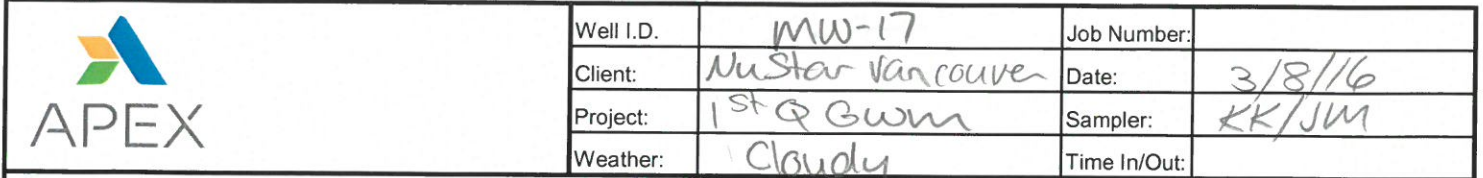 APEX
Well I.D. MW-17 Job Number:
Client: NuStar Vancouver Date: 3/8/16
Project: 1st Q GWM Sampler: KK/JM
Weather: Cloudy Time In/Out: